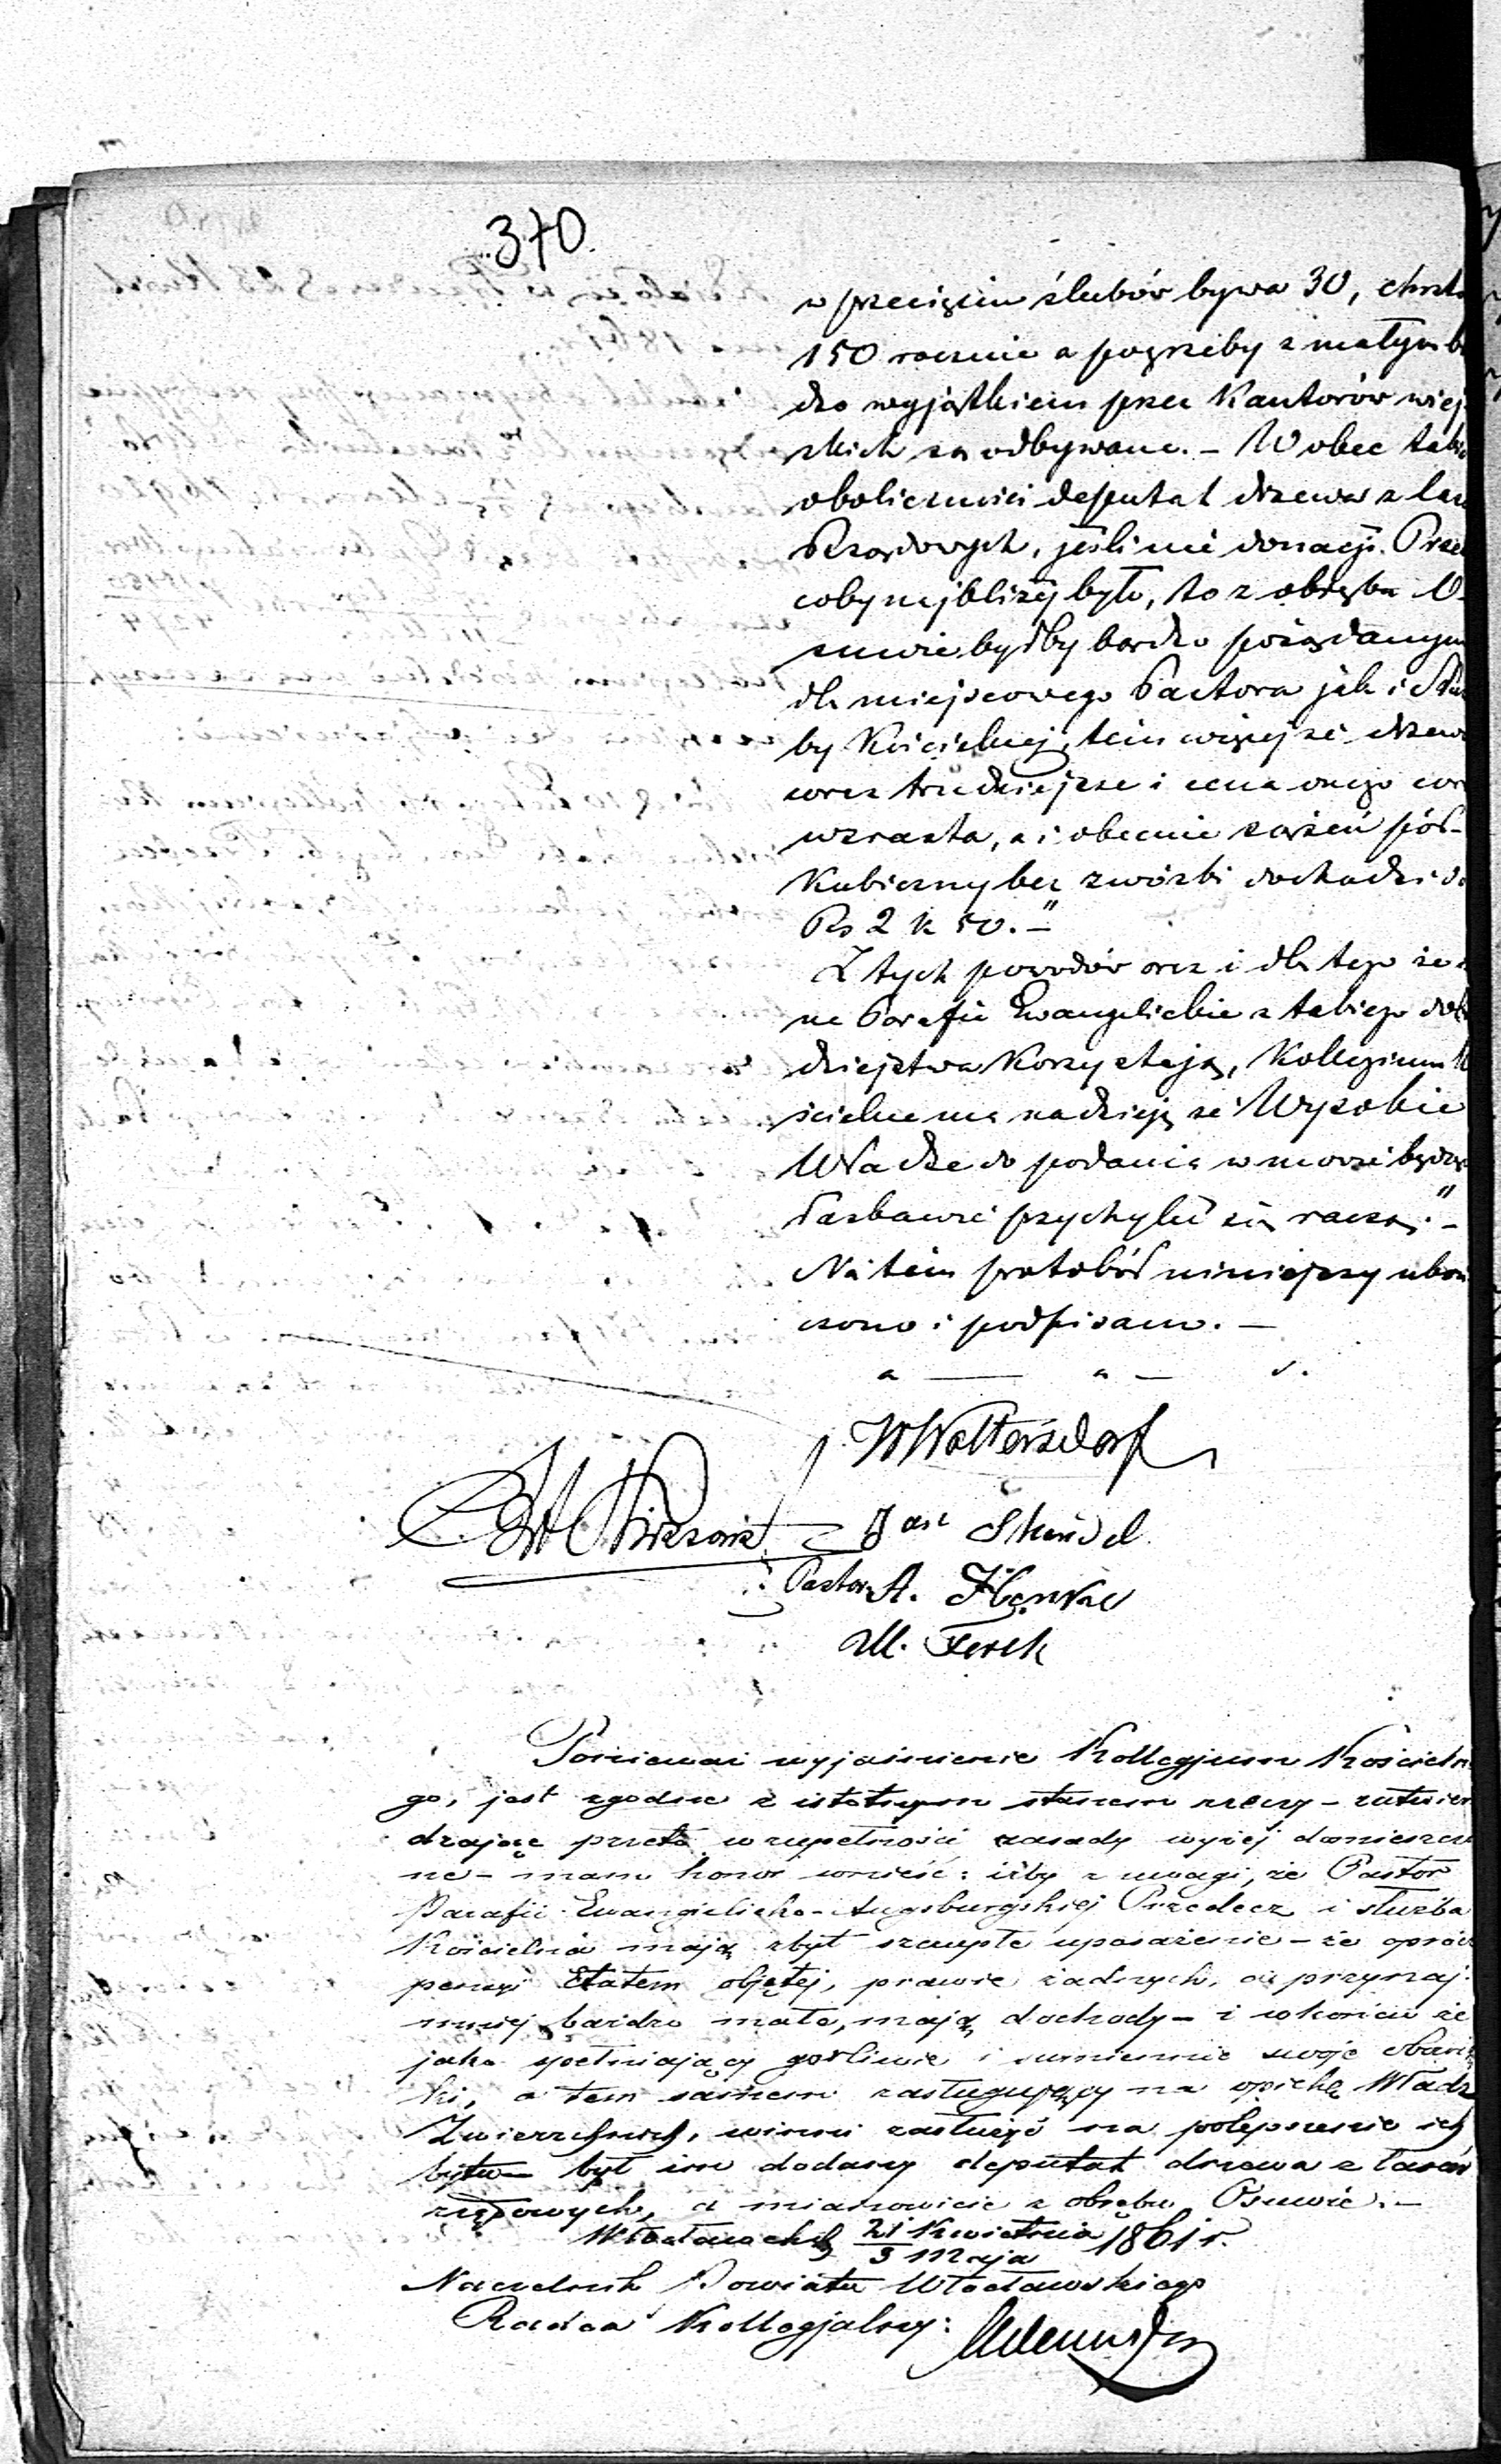 370.
w przecięciu ślubów bywa 30, chrztó
150 rocznie a pogrzeby z małym ba
dzo wyjątkiem przez Kantorów wiej
skich są odbywane. – W obec taki
okoliczności deputat drzewa z las
Rządowych, jeśli nie donacji. Prze
coby najbliżej było, to z obrębu O-
suwie byłby bardzo pożądanym
dla miejscowego Pastora jak i Służ
by Kościelnej, tém więcej że drzewo
coraz trudniejsze i cena onego cor
wzrasta, a i obecnie sążeń pół-
Kubiczny bez zwózki dochodzi do
Rs 2 k 50. –"
Z tych powodów oraz i dla tego że
ne Parafie Ewangelickie z takiego dob
dziejstwa Korzystają, Kollegium K
ścielne ma nadzieję że Wysokie
Władze do podania w mowie będąc
łaskawie przychylić się raczą." –
Na tém protokół niniejszy ukoń
czono i podpisano. –
W Woltersdorf
Jan
Pastor A. Henke
M. Ferch
Ponieważ wyjaśnienie Kollegjum Kościeln
go, jest zgodne z istotnym stanem rzeczy – zatwier
dzając przeto w zupełności zasady wyżej domieszczo
ne – mam honor wnieść: iżby z uwagi, że Pastor
Parafii Ewangielicko-Augsburgskiej Przedecz i służba
Kościelna mają zbyt szczupłe uposażenie – że oprócz
pensyi Etatem objętej, prawie żadnych, a przynaj-
mniej bardzo małe, mają dochody – i wkońcu że
jako spełniający gorliwie i sumiennie swoje obowią
ki, a tem samem zasługujący na opiekę Władz
Zwierzchnich, winni zasłużyć na polepszenie ich
bytu – był im dodany deputat drzewa z lasów
rządowych, a mianowicie z obrębu Osuwie. –
Włocławek d 21 Kwietnia / 3 Maja 1861 r.
Naczelnik Powiatu Włocławskiego
Radca Kollegjalny: